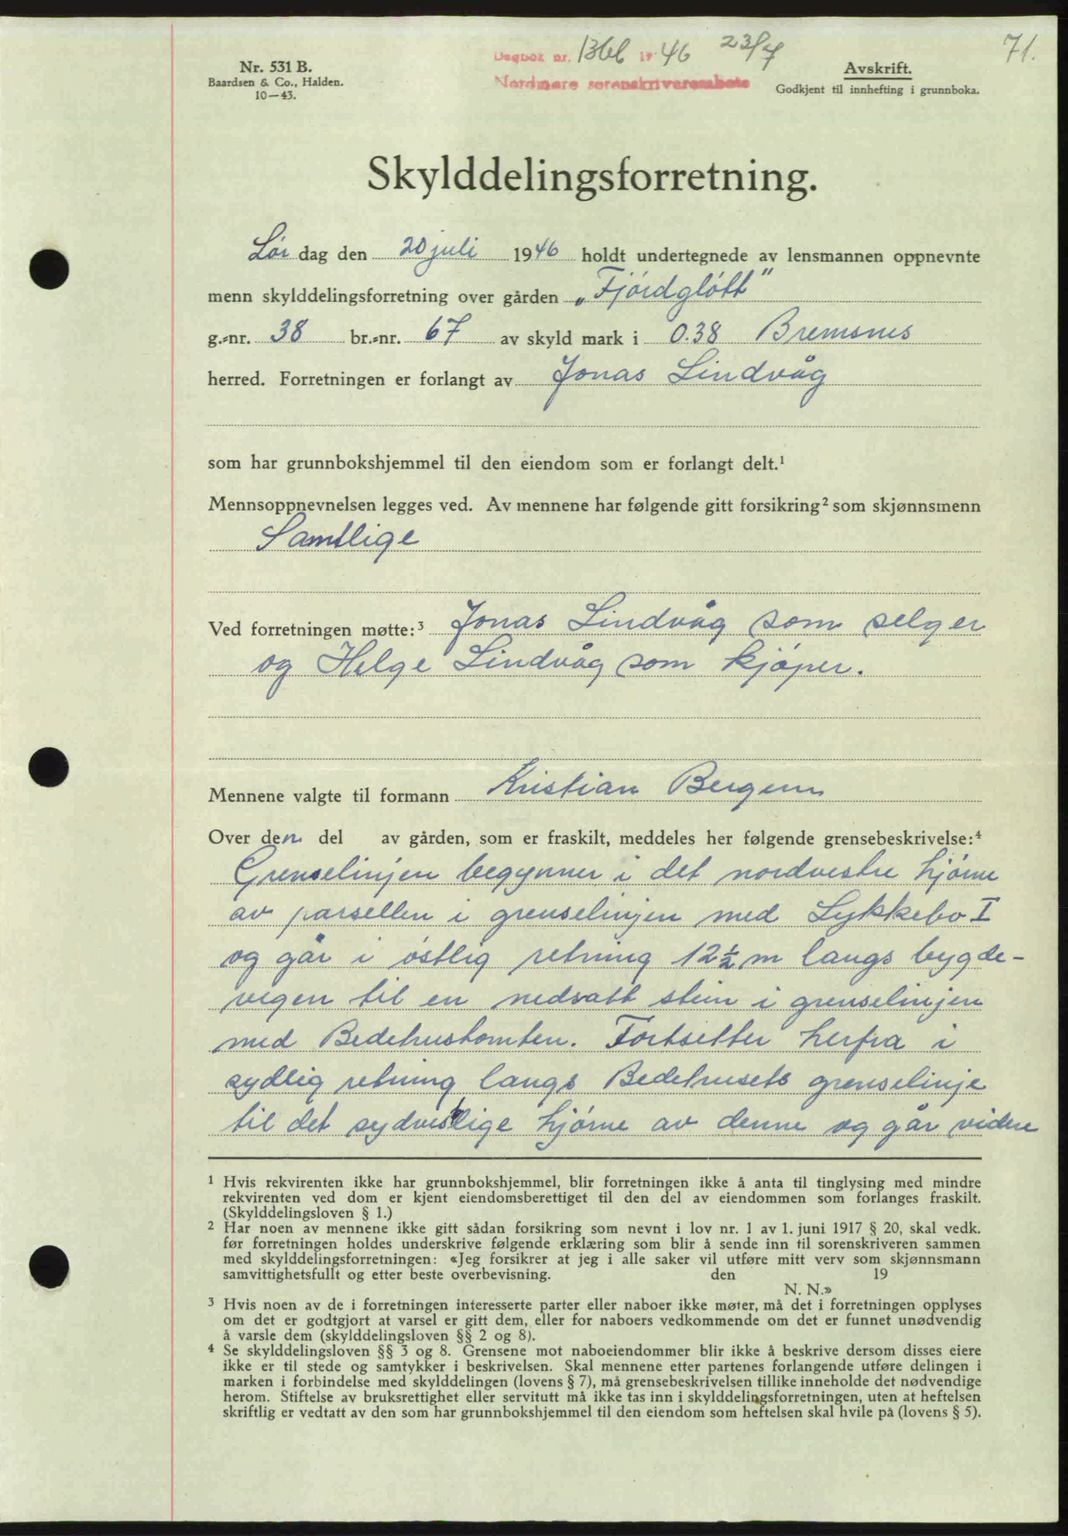 71.
Dagbok nr. 1366 19 46 23/7
Nordmøre sorenskriverembete
Nr. 531 B.
Baardsen & Co., Halden.
10—43.
Avskrift.
Godkjent til innhefting i grunnboka.
Skylddelingsforretning.
Lør dag den 20 juli 1946 holdt undertegnede av lensmannen oppnevnte
menn skylddelingsforretning over gården „Fjórdglótt"
g.-nr. 38 br.-nr. 67 av skyld mark i 0.38 Bremsnes
herred. Forretningen er forlangt av Jonas Lindvåg
som har grunnbokshjemmel til den eiendom som er forlangt delt.¹
Mennsoppnevnelsen legges ved. Av mennene har følgende gitt forsikring² som skjønnsmenn
Samtlige
Ved forretningen møtte:³ Jonas Lindvåg som selger
og Helge Lindvåg som kjóper.
Mennene valgte til formann Kristian Bergem
Over den del av gården, som er fraskilt, meddeles her følgende grensebeskrivelse:⁴
Grenselinjen begynner i det nordvestre hjórne
av parsellen i grenselinjen med Lykkebo I
og går i óstlig retning 12½ m langs bygde-
vegen til en nedsatt stein i grenselinjen
med Bedehustomten. Fortsetter herfra i
sydlig retning langs Bedehusets grenselinje
til det sydvestlige hjórne av denne og går videre
¹ Hvis rekvirenten ikke har grunnbokshjemmel, blir forretningen ikke å anta til tinglysing med mindre
rekvirenten ved dom er kjent eiendomsberettiget til den del av eiendommen som forlanges fraskilt.
(Skylddelingsloven § 1.)
² Har noen av mennene ikke gitt sådan forsikring som nevnt i lov nr. 1 av 1. juni 1917 § 20, skal vedk.
før forretningen holdes underskrive følgende erklæring som blir å sende inn til sorenskriveren sammen
med skylddelingsforretningen: «Jeg forsikrer at jeg i alle saker vil utføre mitt verv som skjønnsmann
samvittighetsfullt og etter beste overbevisning. den 19
N. N.»
³ Hvis noen av de i forretningen interesserte parter eller naboer ikke møter, må det i forretningen opplyses
om det er godtgjort at varsel er gitt dem, eller for naboers vedkommende om det er funnet unødvendig
å varsle dem (skylddelingsloven §§ 2 og 8).
⁴ Se skylddelingsloven §§ 3 og 8. Grensene mot naboeiendommer blir ikke å beskrive dersom disses eiere
ikke er til stede og samtykker i beskrivelsen. Skal mennene etter partenes forlangende utføre delingen i
marken i forbindelse med skylddelingen (lovens § 7), må grensebeskrivelsen tillike inneholde det nødvendige
herom. Stiftelse av bruksrettighet eller servitutt må ikke tas inn i skylddelingsforretningen, uten at heftelsen
skriftlig er vedtatt av den som har grunnbokshjemmel til den eiendom som heftelsen skal hvile på (lovens § 5).